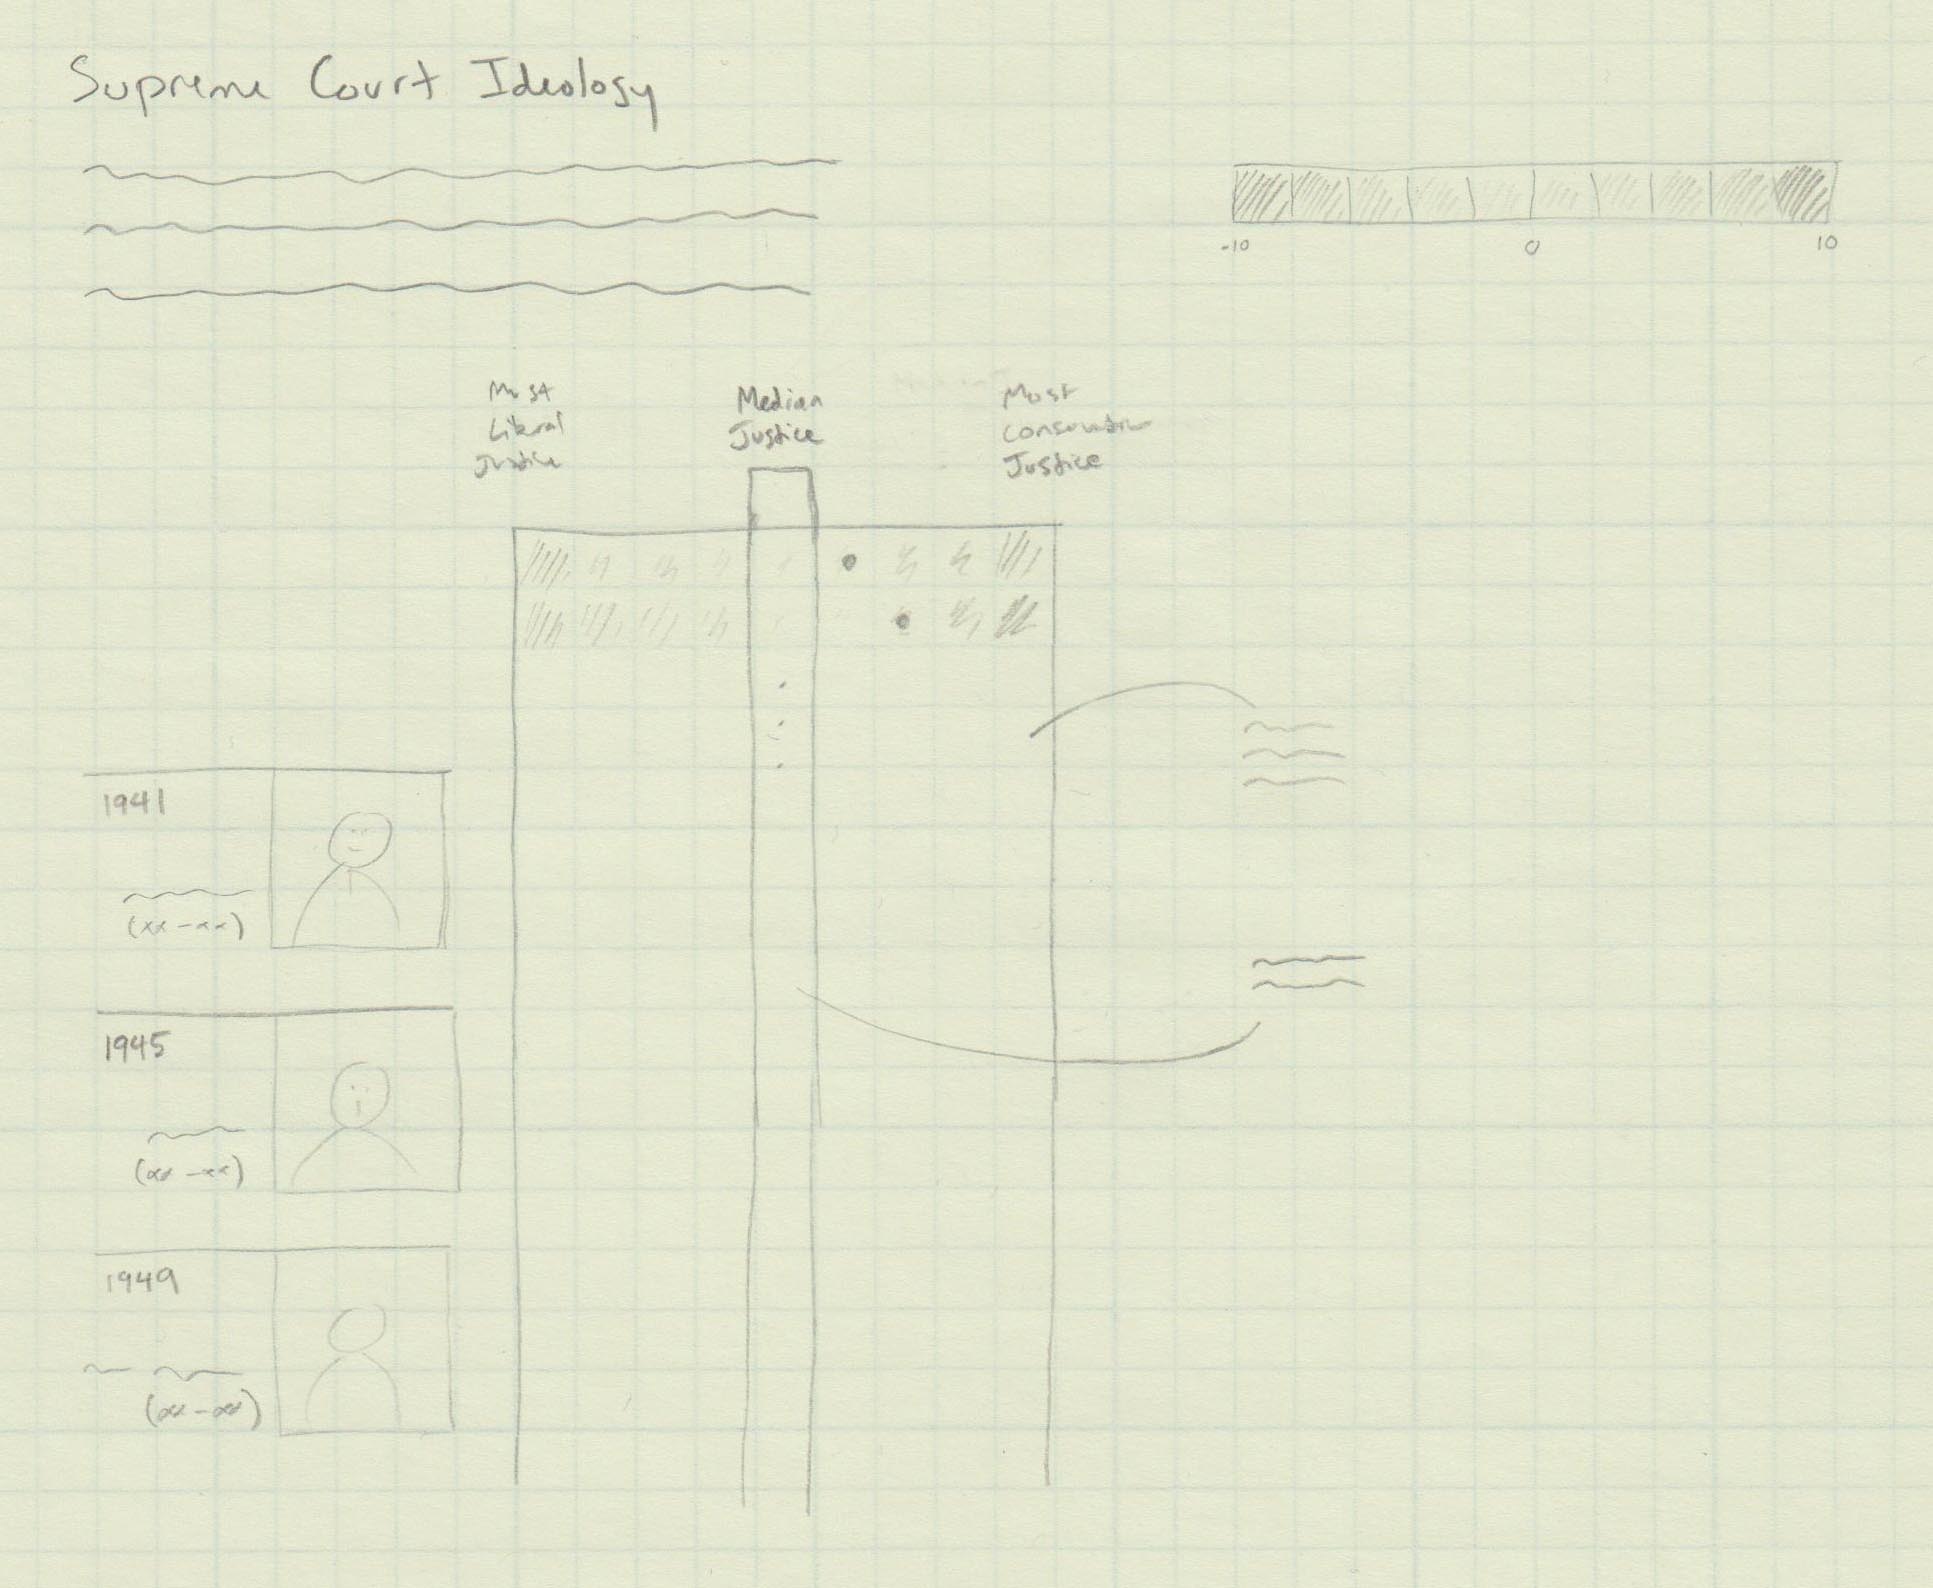 Supreme Court Ideology
-10 0 10
Most
Liberal
Justice
Median
Justice
Most
Conservative
Justice
1941
(xx-xx)
1945
(xx-xx)
1949
(xx-xx)